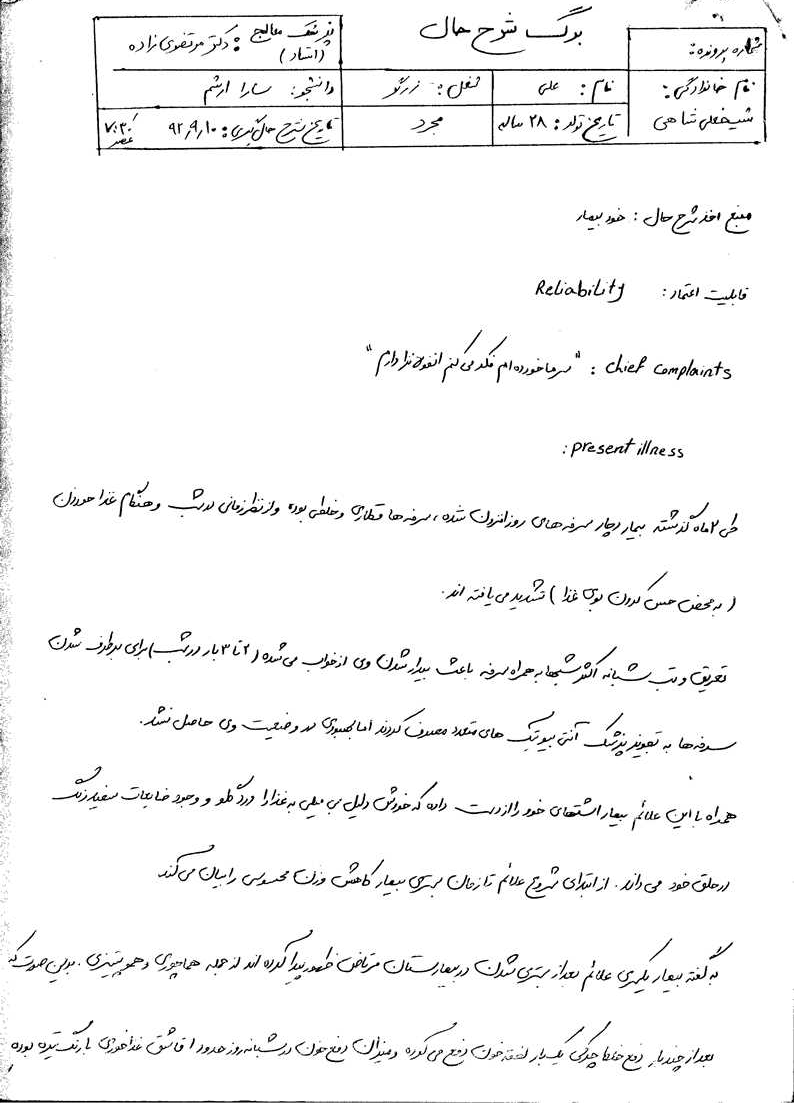 برگ شرح حال
شماره پرونده:
پزشک معالج: دکتر مرتضوی زاده
(استاد)
نام خانوادگی:
شیخعلی شاهی
نام: علی
شغل: زرگر
دانشجو: سارا ارشم
تاریخ تولد: ۲۸ ساله
مجرد
تاریخ شرح حال گیری: ۹۲٫۹٫۱۰
۷:۳۰
عصر
منبع اخذ شرح حال: خود بیمار
قابلیت اعتماد: Reliability
chief complaints: "سرما خورده ام فکر می کنم انفولانزا دارم"
present illness:
طی ۲ ماه گذشته بیمار دچار سرفه های روزافزون شده، سرفه ها قطاری و خلطی بوده و از نظر زمانی در شب و هنگام غذا خوردن
(به محض حس کردن بوی غذا) تشدید می یافته اند.
تعریق و تب شبانه اکثر شبها به همراه سرفه باعث بیدار شدن وی از خواب می شده (۲ تا ۳ بار در شب) برای برطرف شدن
سرفه ها به تجویز پزشک آنتی بیوتیک های متعدد مصرف کردند اما بهبودی در وضعیت وی حاصل نشد.
همراه با این علائم بیمار اشتهای خود را از دست داده که خودش دلیل بی میلی به غذا را درد گلو و وجود ضایعات سفید رنگ
در حلق خود می داند. از ابتدای شروع علائم تا زمان بستری بیمار کاهش وزن محسوسی را بیان می کند
به گفته بیمار یکسری علائم بعد از بستری شدن در بیمارستان مرتاض ظهور پیدا کرده اند از جمله هماچوری و هموپتیزی. بدین صورت که
بعد از چند بار دفع خلط چرکی یک بار لخته خون دفع می کرده و میزان دفع خون در شبانه روز حدود ۱ قاشق غذاخوری با رنگ تیره بوده